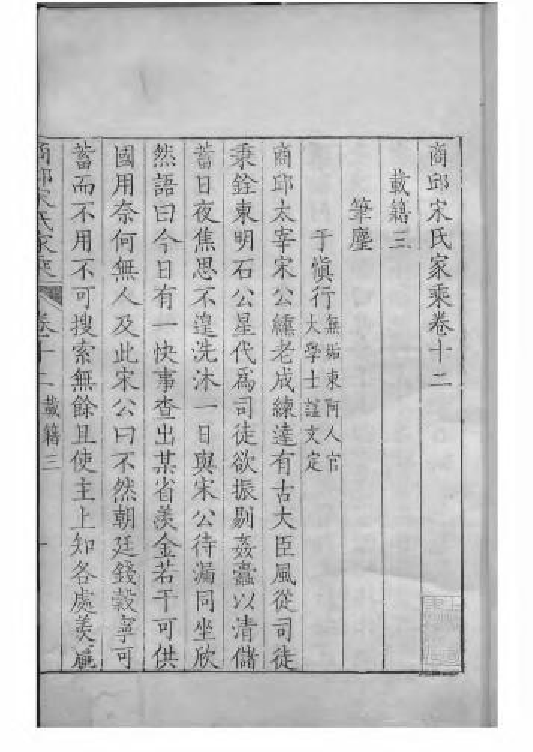 商邱宋氏家乘卷十二
載籍三
筆麈
于愼行
無垢東阿人官
大學士諡文定
商邱太宰宋公纁老成練達有古大臣風從司徒
秉銓東明石公星代爲司徒欲振剔姦蠹以清儲
蓄日夜焦思不遑洗沐一日與宋公待漏同坐欣
然語曰今日有一快事查出某省羨金若干可供
國用奈何無人及此宋公曰不然朝廷錢穀寧可
蓄而不用不可搜索無餘且使主上知各處羨
商邱宋氏家乘 卷十二 載籍三 一